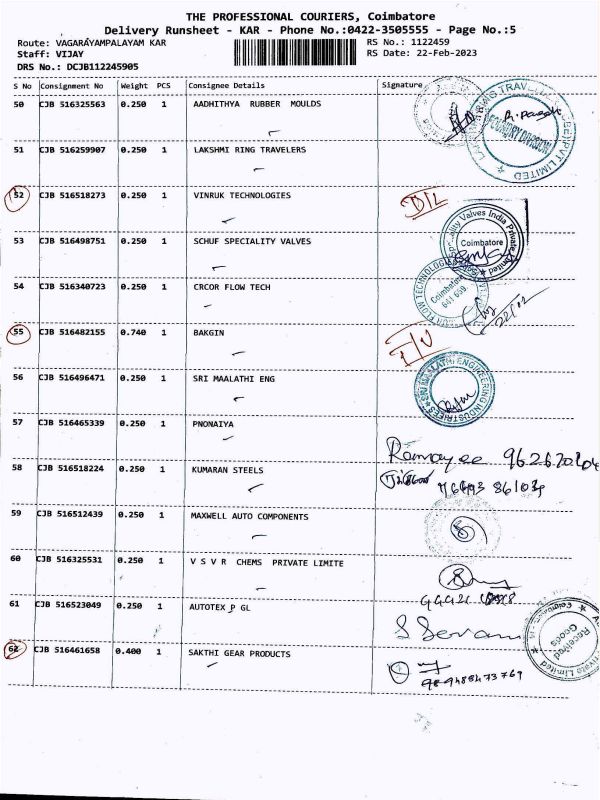 THE PROFESSIONAL COURIERS, Coimbatore
Delivery Runsheet - KAR - Phone No.:0422-3505555 - Page No.:5
Route: VAGARAYAMPALAYAM KAR
RS No.: 1122459
Staff: VIJAY
RS Date: 22-Feb-2023
DRS No.: DCJB112245905
S No Consignment No Weight PCS Consignee Details Signature
50 CJB 516325563 0.250 1 AADHITHYA RUBBER MOULDS
51 CJB 516259907 0.250 1 LAKSHMI RING TRAVELERS
FOUNDRY DIVISION
52 CJB 516518273 0.250 1 VINRUK TECHNOLOGIES
D/L
53 CJB 516498751 0.250 1 SCHUF SPECIALITY VALVES
Coimbatore
54 CJB 516340723 0.250 1 CRCOR FLOW TECH
Coimbatore
641 659
22/02
55 CJB 516482155 0.740 1 BAKGIN
56 CJB 516496471 0.250 1 SRI MAALATHI ENG
SRI MAALATHI ENGINEERING INDUSTRIES
57 CJB 516465339 0.250 1 PNONAIYA
Ramayee
58 CJB 516518224 0.250 1 KUMARAN STEELS
59 CJB 516512439 0.250 1 MAXWELL AUTO COMPONENTS
60 CJB 516325531 0.250 1 V S V R CHEMS PRIVATE LIMITE
61 CJB 516523049 0.250 1 AUTOTEX P GL
Received
Goods
62 CJB 516461658 0.400 1 SAKTHI GEAR PRODUCTS